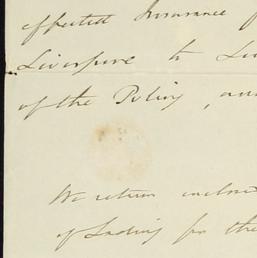 effected Insurance
Liverpool to
of the Policy,
We return enclosed
of Lading for the